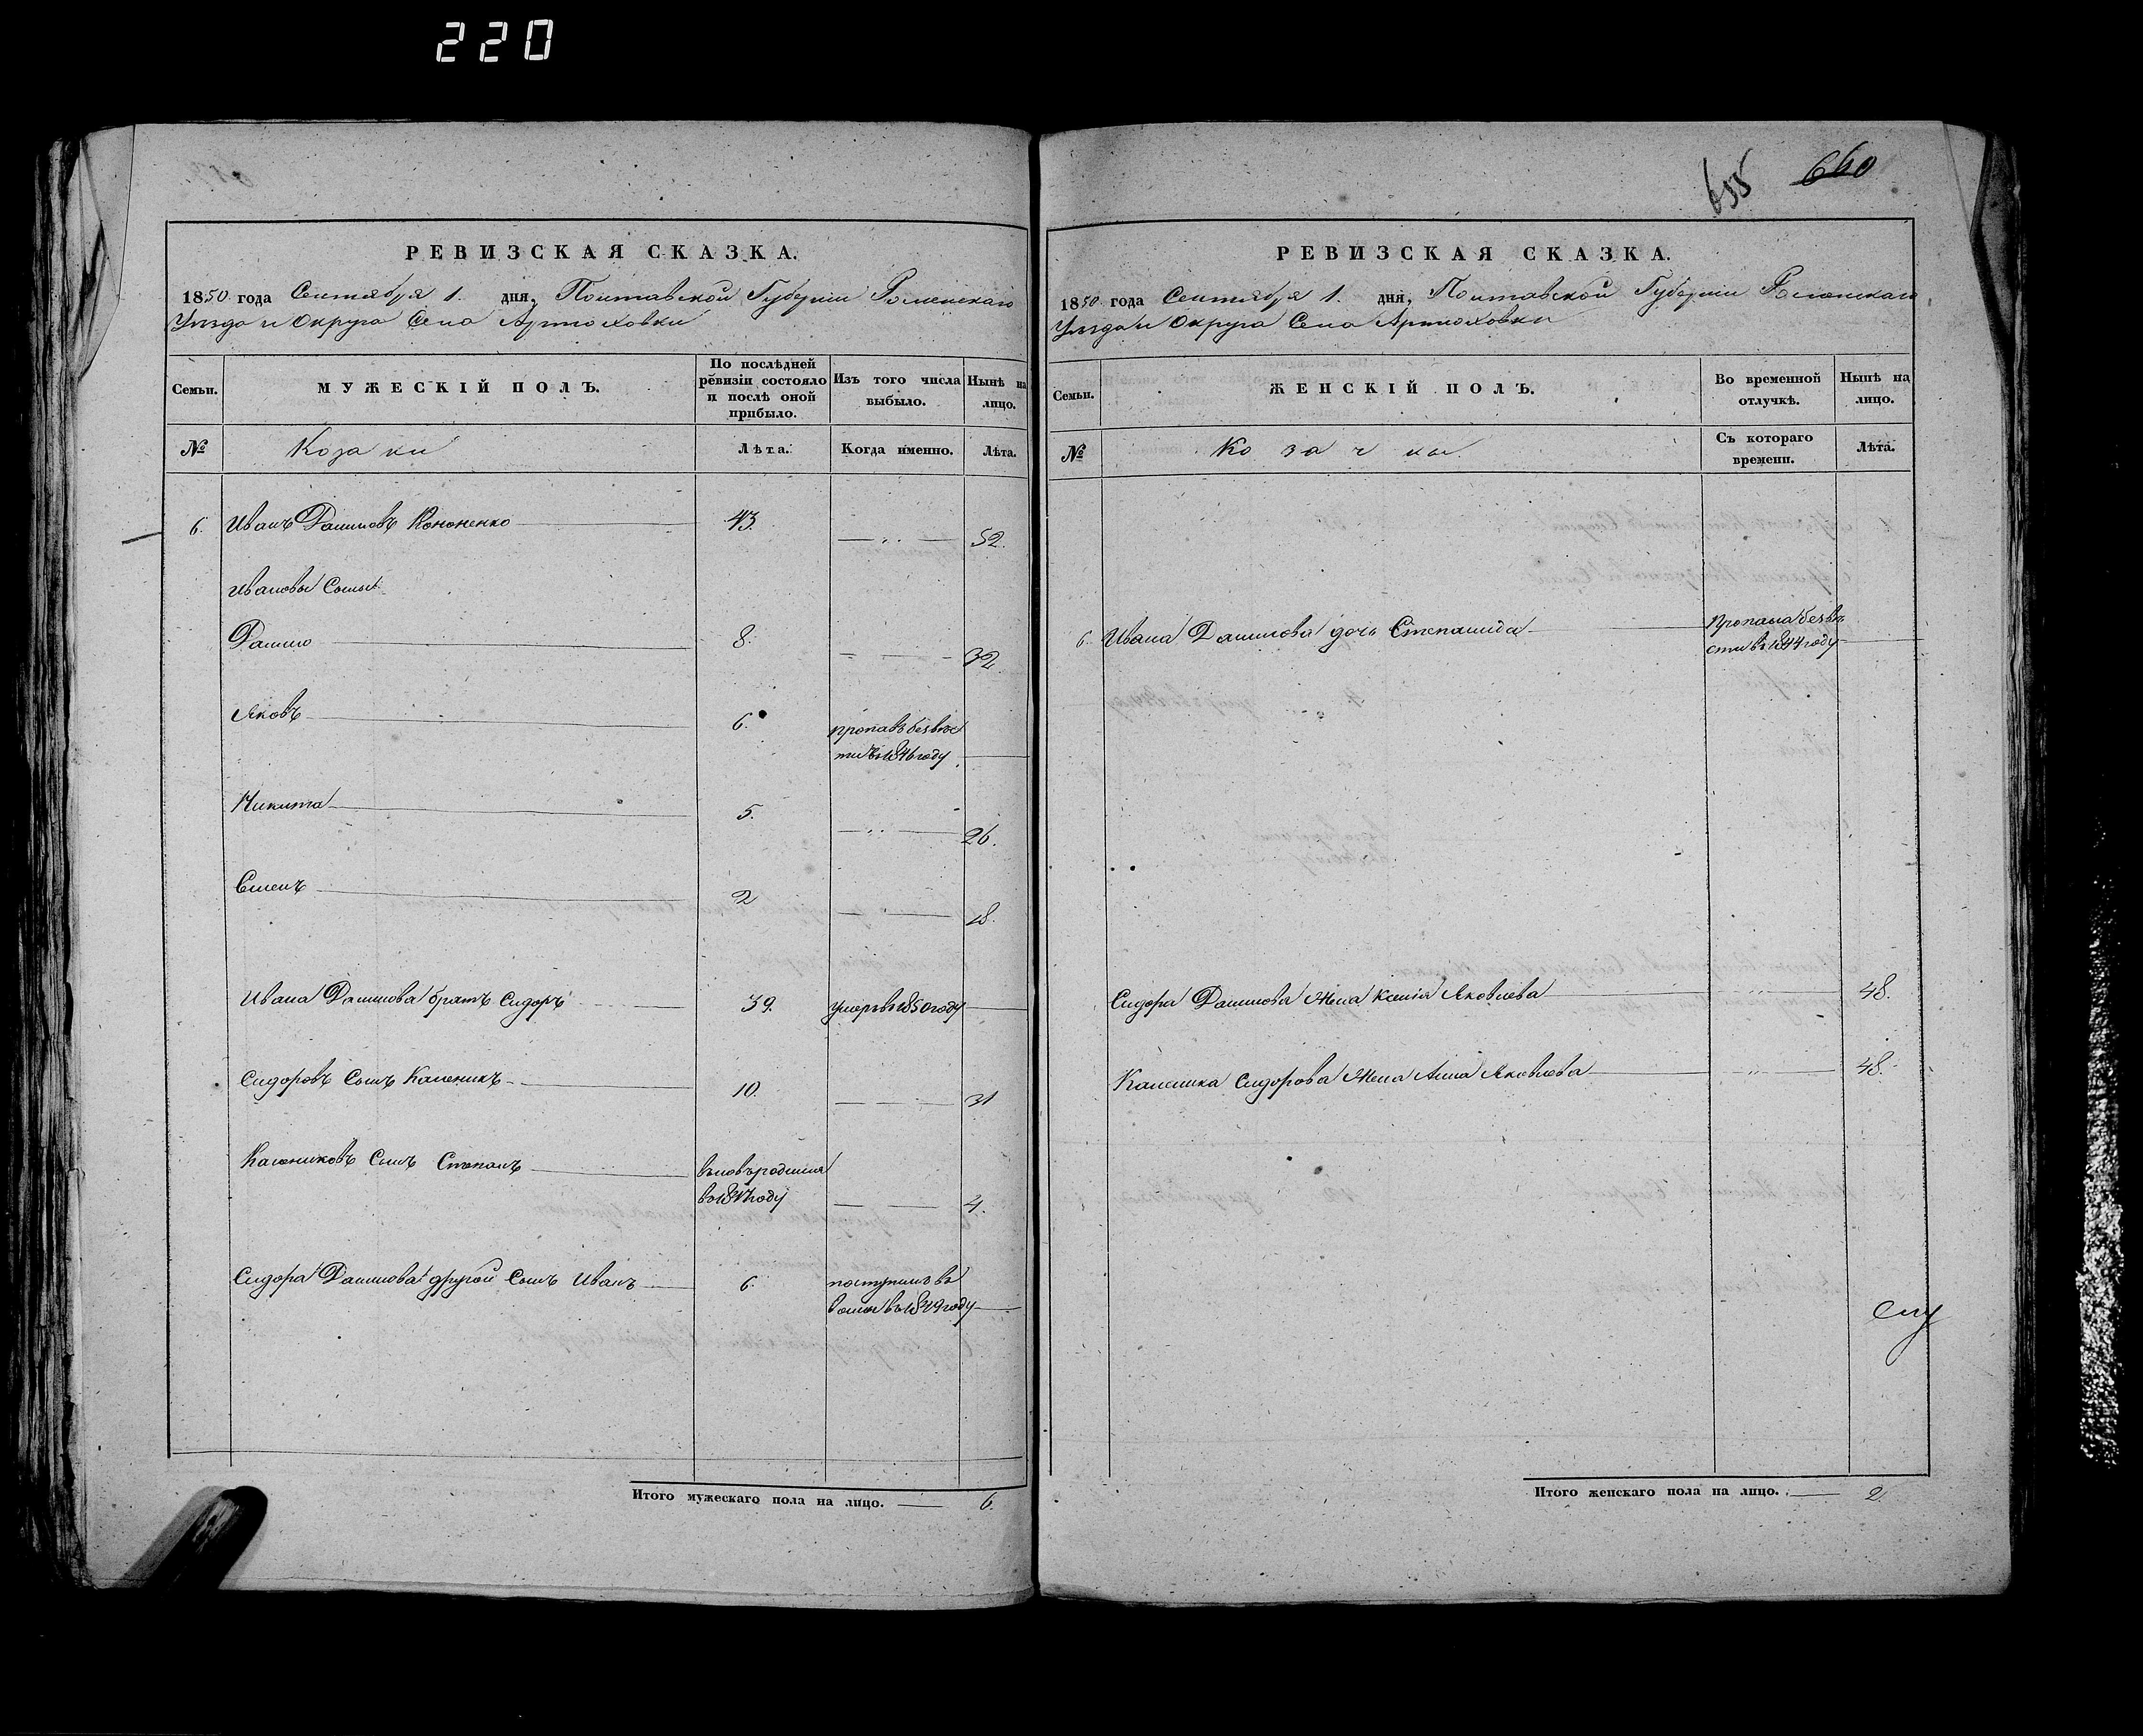 220
655 660
РЕВИЗСКАЯ СКАЗКА.
1850 года Сентября 1. дня, Полтавской Губерніи Роменскаго
Уѣзда и Округа Села Артюховки
Семьи.
МУЖЕСКІЙ ПОЛЪ.
По послѣдней ревизіи состояло и послѣ оной прибыло.
Изъ того числа выбыло.
Нынѣ на лицо.
№
Козаки
Лѣта.
Когда именно.
Лѣта.
6. Иванъ Даниловъ Кононенко 43. — „ — 52.
Ивановы Сыны
Данило 8. — — — 32
Яковъ 6. пропавъ безвѣс
ти въ 1846 году
Никита 5. — „ — 26.
Семенъ 2 — — — 18.
Ивана Данилова братъ Сидоръ 39. умеръ въ 1850 году
Сидоровъ Сынъ Каленикъ 10. — — — 31
Калениковъ Сынъ Степанъ вновьродился
въ 1847 году — — 4.
Сидора Данилова другой Сынъ Иванъ 6. поступилъ въ
въ 1849 году
Итого мужескаго пола на лицо. — 6.
РЕВИЗСКАЯ СКАЗКА.
1850 года Сентября 1. дня, Полтавской Губерніи Роменскаго
Уѣзда и Округа Села Артюховки
Семьи.
ЖЕНСКІЙ ПОЛЪ.
Во временной отлучкѣ.
Нынѣ на лицо.
№
Козачки.
Съ котораго времени.
Лѣта.
6 Ивана Данилова дочь Степанида Пропала безвѣ
сти въ 1844 году
Сидора Данилова Жена Ксенія Яковлева — „ — 48.
Каленика Сидорова Жена Анна Яковлева — „ — 48.
Итого женскаго пола на лицо. — 2.